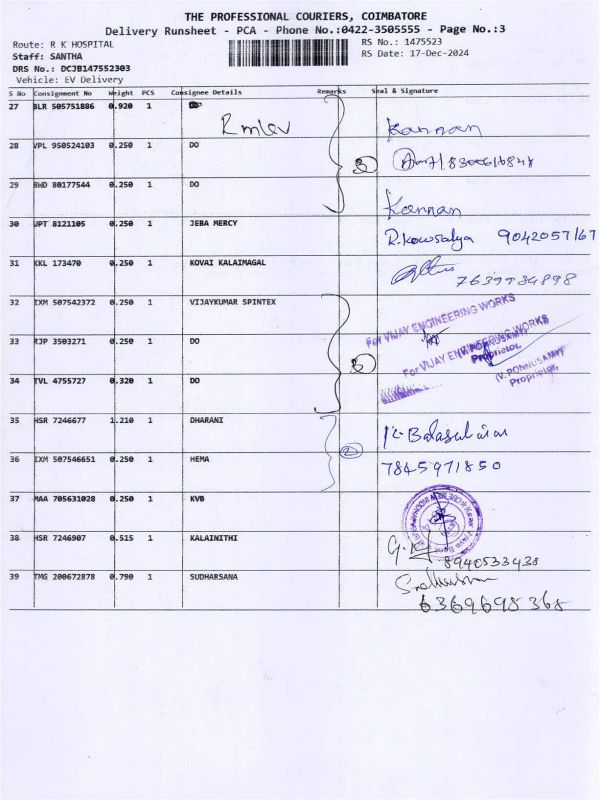 THE PROFESSIONAL COURIERS, COIMBATORE
Delivery Runsheet - PCA - Phone No.:0422-3505555 - Page No.:3
Route: R K HOSPITAL
RS No.: 1475523
Staff: SANTHA
RS Date: 17-Dec-2024
DRS No.: DCJB147552303
Vehicle: EV Delivery
S No Consignment No Weight PCS Consignee Details Remarks Seal & Signature
27 BLR 505751886 0.920 1
Kannan
28 VPL 950524103 0.250 1 DO 3
29 BHD 80177544 0.250 1 DO
Kannan
30 JPT 8121105 0.250 1 JEBA MERCY R.Kowsalya 9042057167
31 KKL 173470 0.250 1 KOVAI KALAIMAGAL
7639984898
32 IXM 507542372 0.250 1 VIJAYKUMAR SPINTEX
For VIJAY ENGINEERING WORKS
33 RJP 3503271 0.250 1 DO 3
For VIJAY ENGINEERING WORKS
(V.PONNUSAMY)
Proprietor.
34 TVL 4755727 0.320 1 DO
(V.PONNUSAMY)
Proprietor.
35 HSR 7246677 1.210 1 DHARANI
36 IXM 507546651 0.250 1 HEMA 2 7845971850
37 MAA 705631028 0.250 1 KVB
38 HSR 7246907 0.515 1 KALAINITHI
8940533438
39 TMG 200672878 0.790 1 SUDHARSANA
6369698368